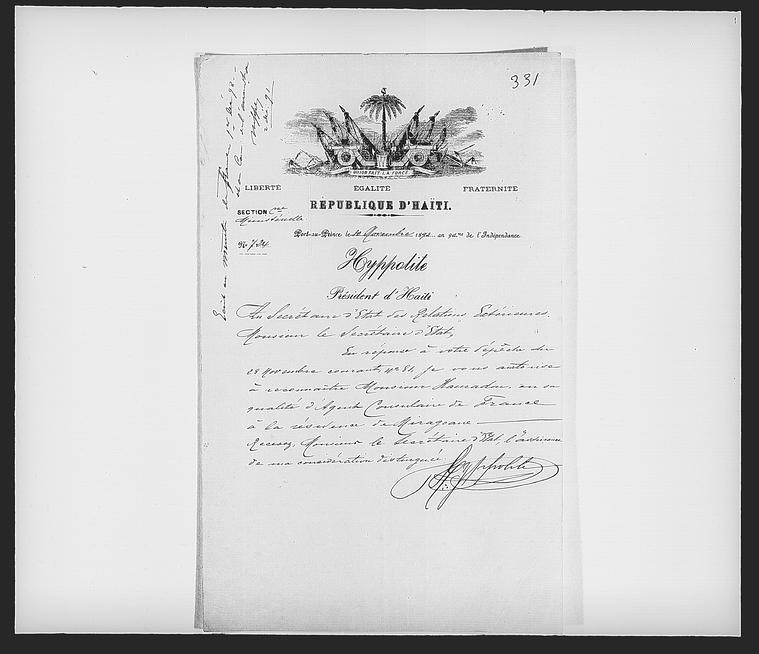 331
L'UNION FAIT LA FORCE
LIBERTÉ EGALITÉ FRATERNITÉ
RÉPUBLIQUE D'HAÏTI.
SECTION
Nº 724
Port-au-Prince, le Novembre 1892 an 90me de l'Indépendance
Hyppolite
Président d'Haïti
Au Secrétaire d'Etat des Relations Extérieures.
Monsieur le Secrétaire d'Etat,
En réponse à votre dépêche du
28 Novembre courant, Nº 81, je vous autorise
à reconnaître Monsieur en sa
qualité d'Agent Consulaire de France
à la résidence de Miragoane
Recevez, Monsieur le Secrétaire d'Etat, l'assurance
de ma considération distinguée
Hyppolite